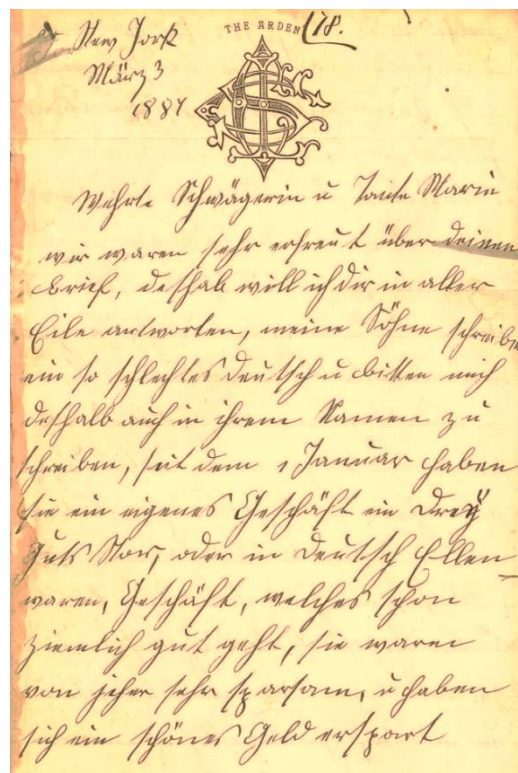 THE ARDEN 18.
New York
März 3
1887
Wehrte Schwägerin u Tante Marie
wir waren sehr erfreut über deinen
brief, deshalb will ich dir in aller
Eile antworten, meine Söhne schreiben
ein so schlechtes deutsch u bitten mich
deshalb auch in ihrem Namen zu
schreiben, seit dem 1 Januar haben
sie ein eigenes Geschäft ein Dreÿ
Guts Stor, oder in deutsch Ellen-
waren, Geschäft, welches schon
ziemlich gut geht, sie waren
von jeher sehr sparsam, u haben
sich ein schönes Geld erspart